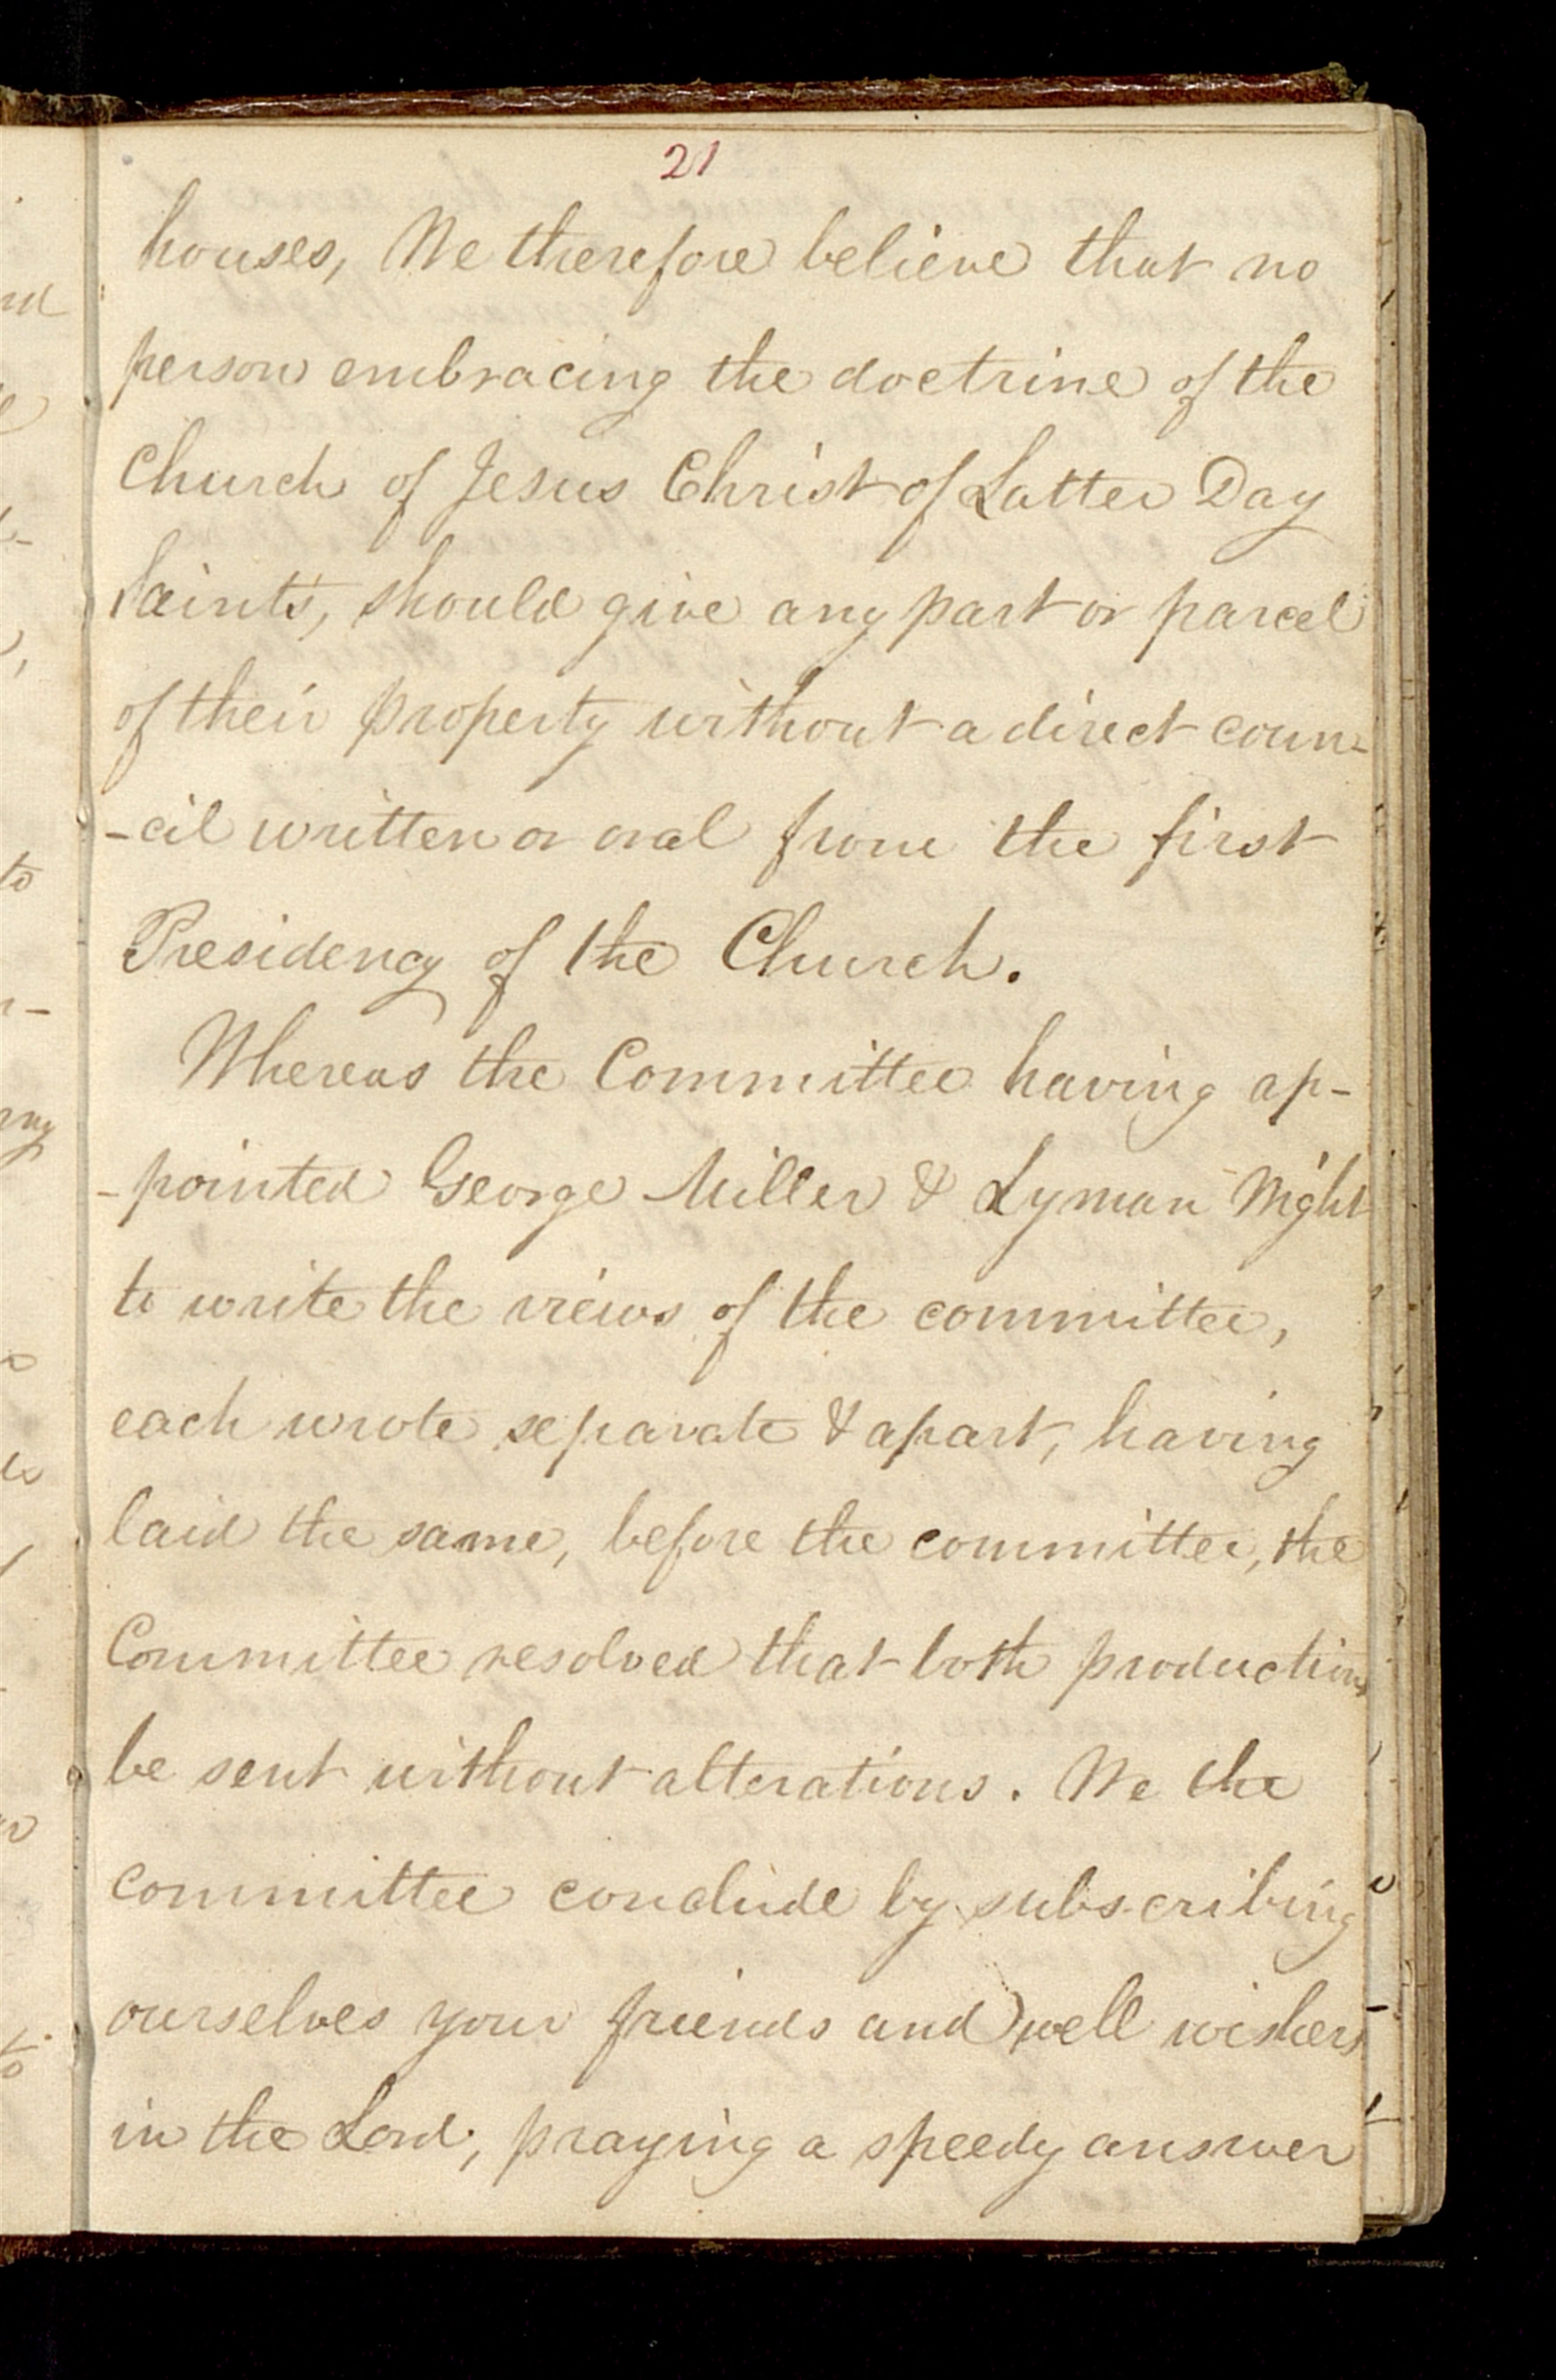 21
houses, We therefore believe that no
person embracing the doctrine of the
Church of Jesus Christ of Latter Day
Saints, should give any part or parcel
of their property without a direct coun-
-cil written or oral from the first
Presidency of the Church.
Whereas the Committee having ap-
-pointed George Miller & Lyman Wight
to write the views of the committee,
each wrote separate & apart, having
laid the same, before the committee, the
Committee resolved that both productions
be sent without alterations. We the
committee conclude by subscribing
ourselves your friends and well wishers
in the Lord, praying a speedy answer